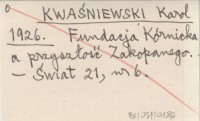 KWAŚNIEWSKI Karol
1926. Fundacja Kórnicka
a przyszłość Zakopanego.
– Świat 21, nr 6.